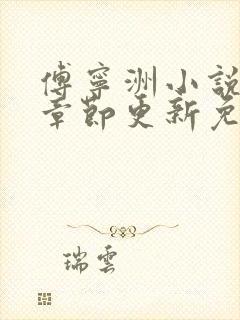 傅寧洲小說
章節更新免
瑞雲